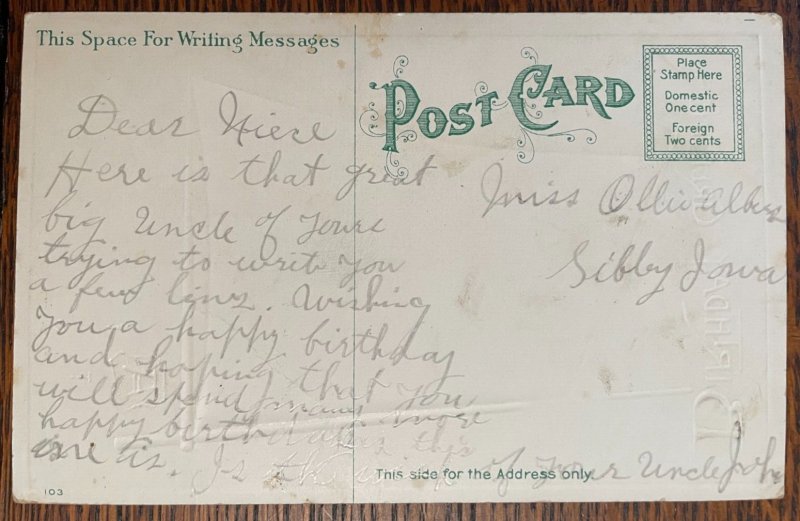 This Space For Writing Messages
POST CARD
Place
Stamp Here
Domestic
One cent
Foreign
Two cents
Dear Niece
Here is that great
big Uncle of yours
trying to write you
a few lines. Wishing
you a happy birthday
and hoping that you
will spend many more
happy birthdays as this
one is. Is the of your Uncle John
Miss Ollie Albers
Sibby Iowa
This side for the Address only.
103
BIRTHDAY